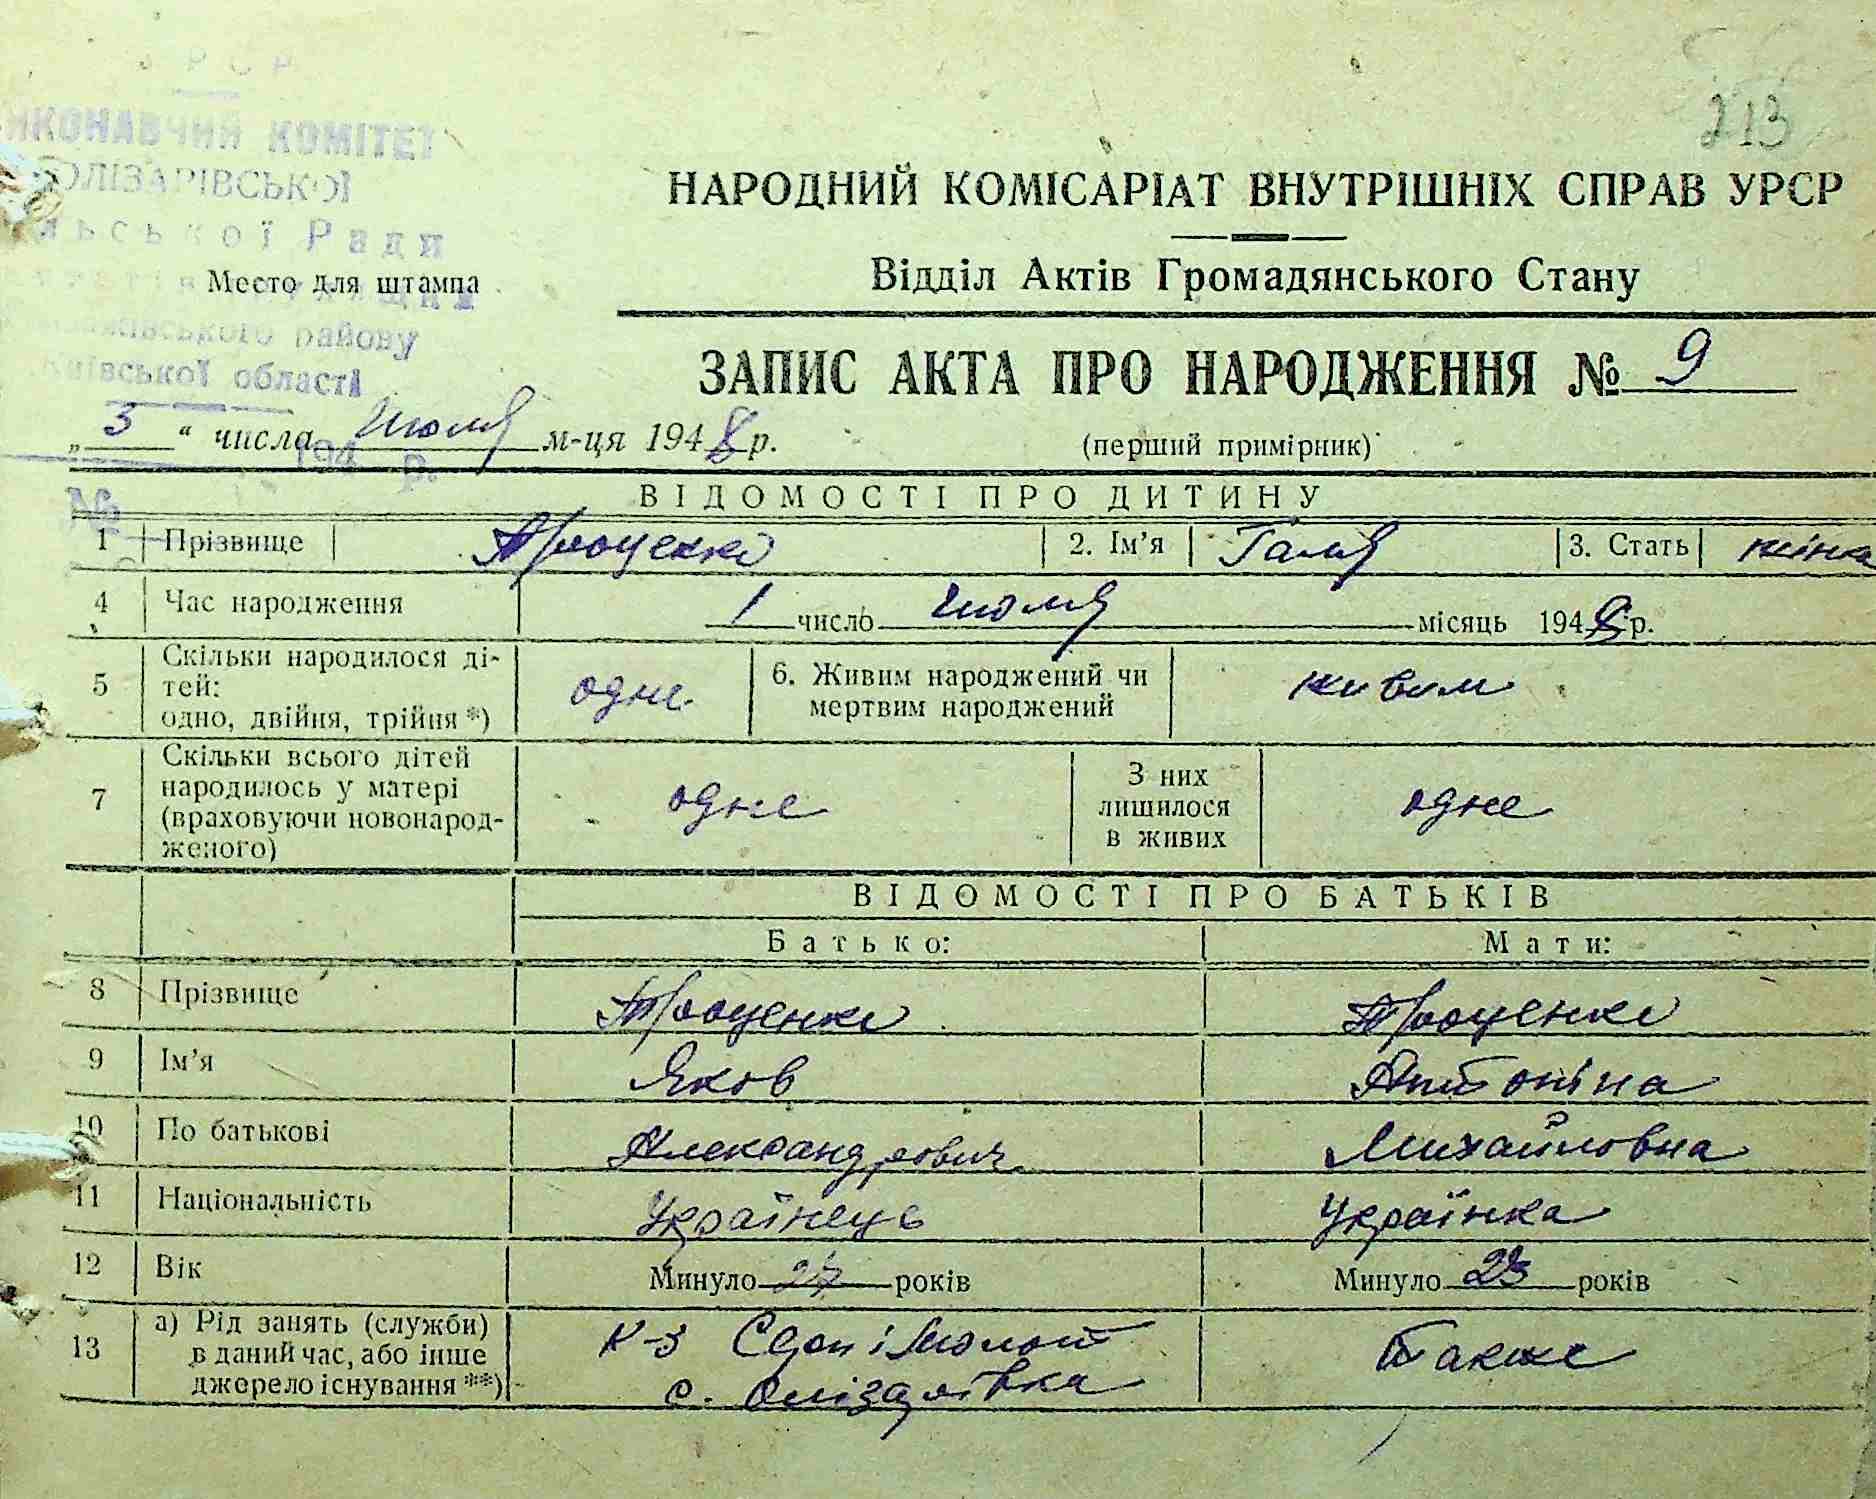 УРСР
ВИКОНАВЧИЙ КОМІТЕТ
213
ОЛІЗАРІВСЬКОЇ
НАРОДНИЙ КОМІСАРІАТ ВНУТРІШНІХ СПРАВ УРСР
сільської Ради
Відділ Актів Громадянського Стану
Место для штампа
району
Київської області
ЗАПИС АКТА ПРО НАРОДЖЕННЯ № 9
„ 3 “ числа Июля м-ця 1948 р.
(перший примірник)
194 р.
№
ВІДОМОСТІ ПРО ДИТИНУ
1 Прізвище Троценко 2. Ім'я Галя 3. Стать жінка
4 Час народження 1 число Июля місяць 1948 р.
5 Скільки народилося ді-
тей:
одно, двійня, трійня *) одне 6. Живим народжений чи
мертвим народжений живим
7 Скільки всього дітей
народилось у матері
(враховуючи новонарод-
женого) одне З них
лишилося
в живих одне
ВІДОМОСТІ ПРО БАТЬКІВ
Батько: Мати:
8 Прізвище Троценко Троценко
9 Ім'я Яков Антоніна
10 По батькові Александрович Михайловна
11 Національність Українець Українка
12 Вік Минуло років Минуло 23 років
13 а) Рід занять (служби)
в даний час, або інше
джерело існування **) к-з Серп і Молот
с. Олізарівка Также